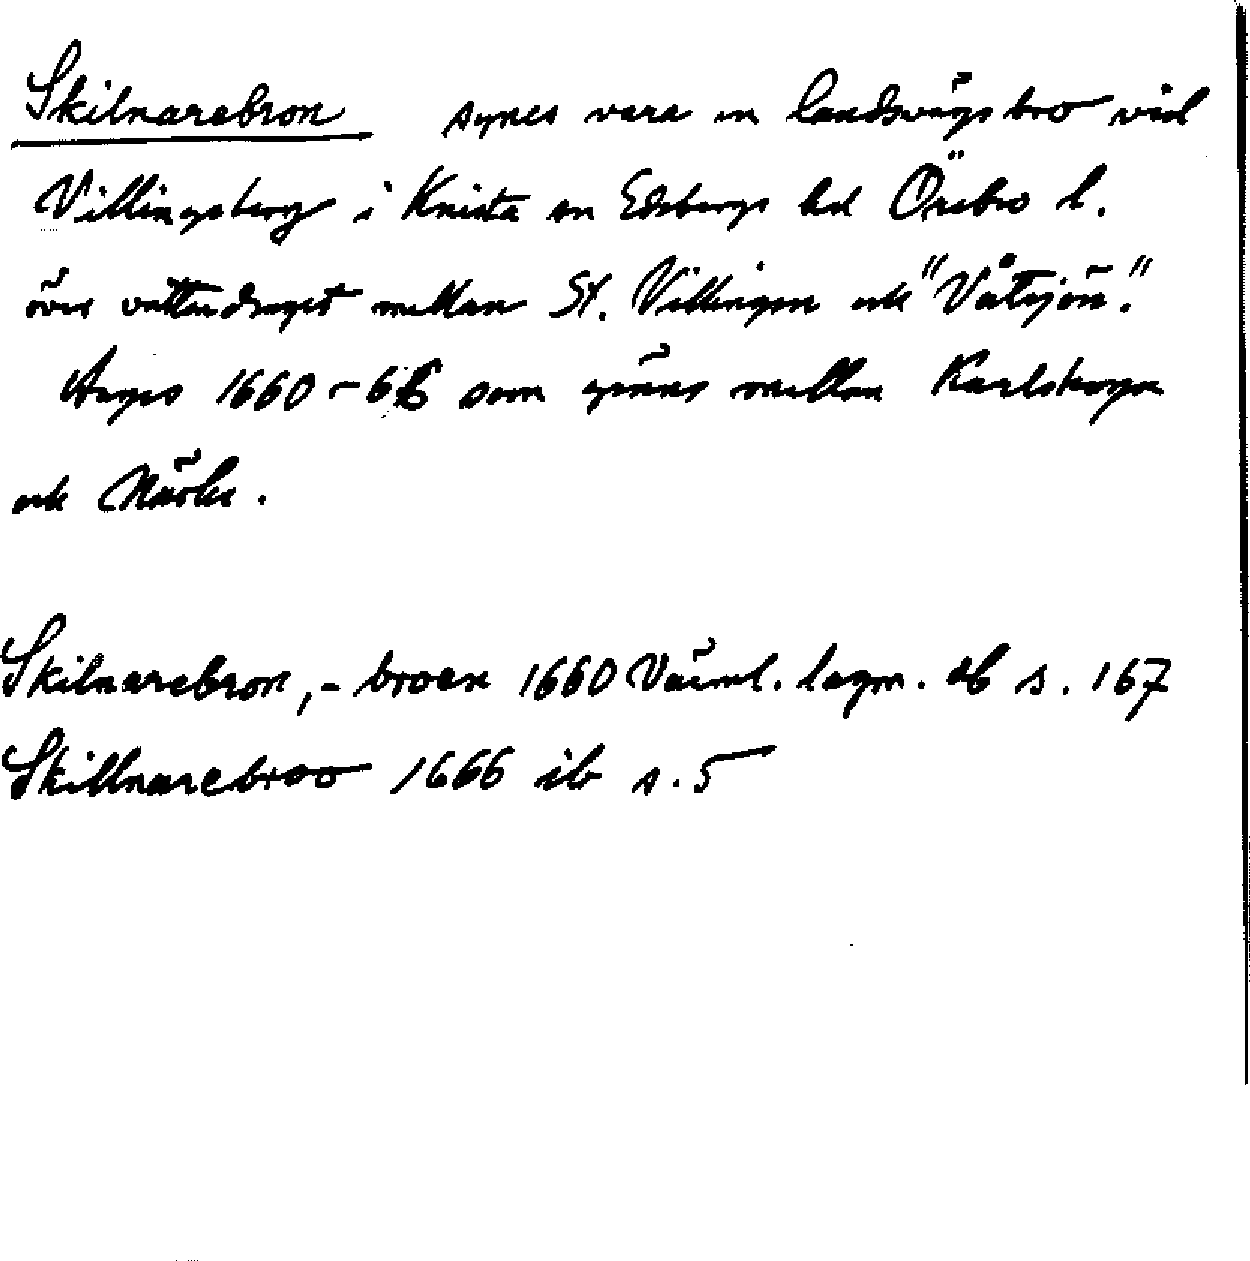 Skilnarebron synes vara en landsvägsbro vid
Villingsberg i Knista sn Edsbergs hd Örebro l.
över vattendraget mellan St. Villingen och "Våtsjön".
Anges 1660-66 som gräns mellan Karlskoga
och Närke.
Skilnarebron, -broen 1660 Värml. lagm. db s. 167
Skillnarebroo 1666 ib s. 5